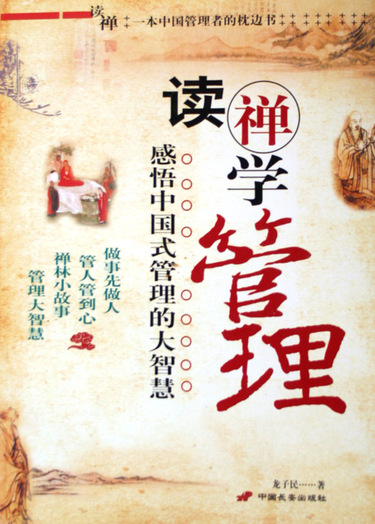 读禅 一本中国管理者的枕边书
读禅学管理
感悟中国式管理的大智慧
做事先做人
管人管到心
禅林小故事
管理大智慧
龙子民……著
中国长安出版社